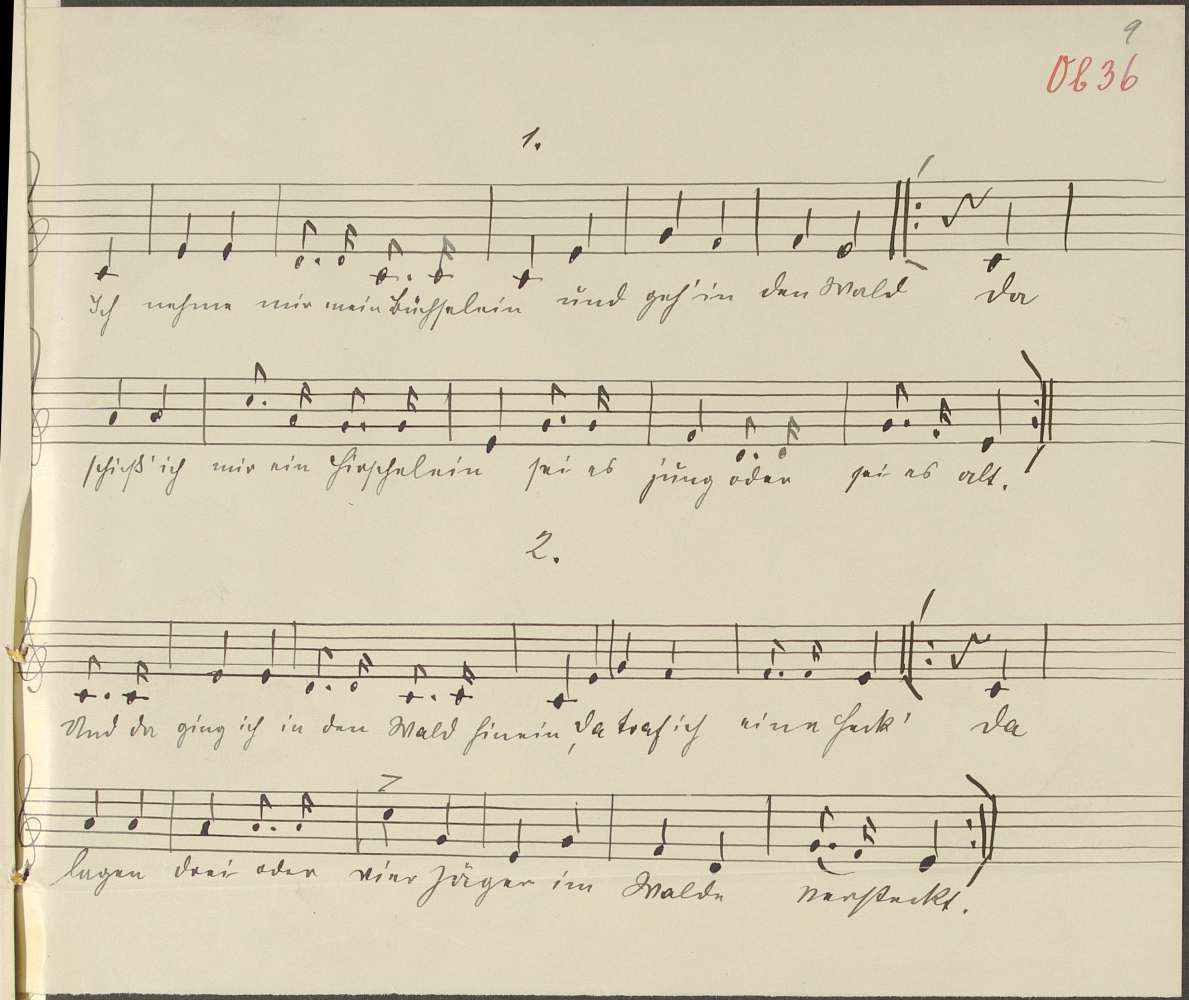 9
Ob 36
1.
Ich nehme mir mein Büchselein und geh' in den Wald da
schieß' ich mir ein Hirschelein sei es jung oder sei es alt.
2.
Und da ging ich in den Wald hinein, da traf ich eine Heck' da
lagen drei oder vier Jäger im Walde versteckt.